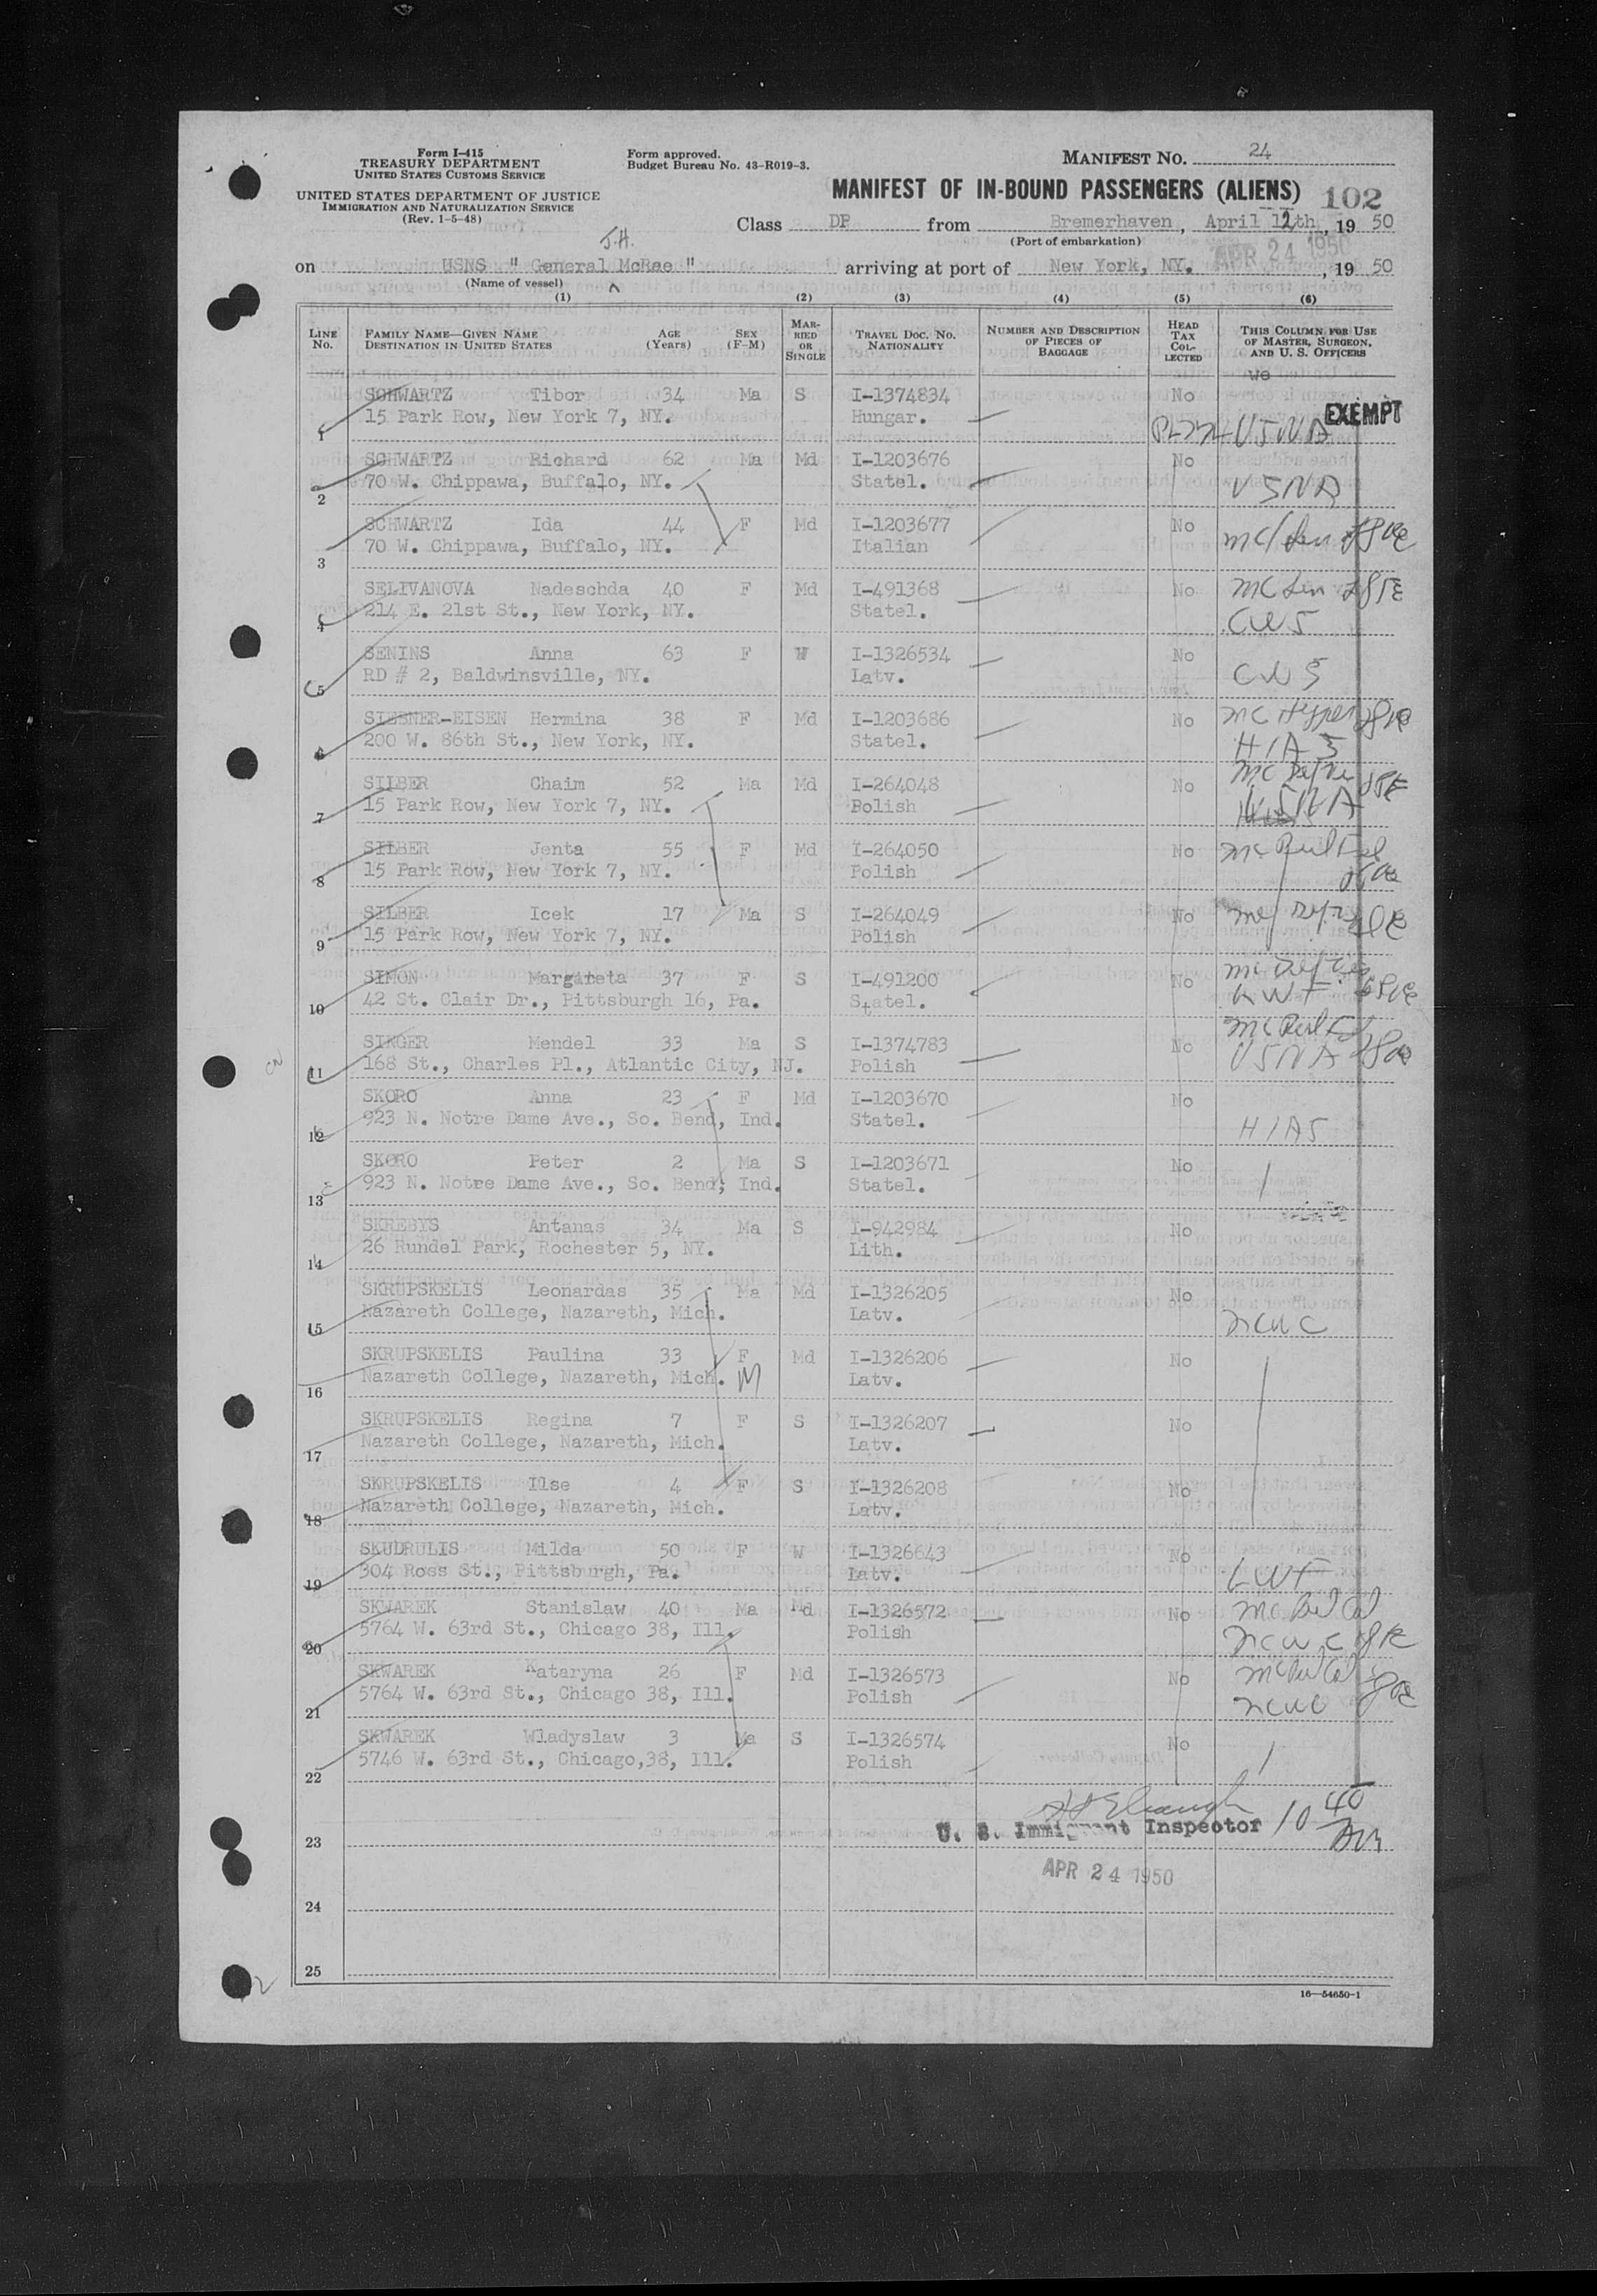 Form I-415
TREASURY DEPARTMENT
UNITED STATES CUSTOMS SERVICE
UNITED STATES DEPARTMENT OF JUSTICE
IMMIGRATION AND NATURALIZATION SERVICE
(Rev. 1-5-48)
Form approved.
Budget Bureau No. 43-R019-3.
MANIFEST NO. 24
MANIFEST OF IN-BOUND PASSENGERS (ALIENS) 102
Class DP from Bremerhaven, April 12th, 1950
(Port of embarkation)
APR 24 1950
J.H.
on USNS " General McRae " arriving at port of New York, NY. , 1950
(Name of vessel)
(1) (2) (3) (4) (5) (6)
LINE No. FAMILY NAME—GIVEN NAME DESTINATION IN UNITED STATES AGE (Years) SEX (F-M) MARRIED OR SINGLE TRAVEL DOC. NO. NATIONALITY NUMBER AND DESCRIPTION OF PIECES OF BAGGAGE HEAD TAX COLLECTED THIS COLUMN FOR USE OF MASTER, SURGEON, AND U. S. OFFICERS
we
SCHWARTZ Tibor 34 Ma S I-1374834 No
1 15 Park Row, New York 7, NY. Hungar. USNA EXEMPT
SCHWARTZ Richard 62 Ma Md I-1203676 No
2 70 W. Chippawa, Buffalo, NY. Statel. USNA
SCHWARTZ Ida 44 F Md I-1203677 No
3 70 W. Chippawa, Buffalo, NY. Italian
SELIVANOVA Nadeschda 40 F Md I-491368 No
4 214 E. 21st St., New York, NY. Statel. CWS
SENINS Anna 63 F W I-1326534 No
5 RD # 2, Baldwinsville, NY. Latv. CWS
SIEBNER-EISEN Hermina 38 F Md I-1203686 No
6 200 W. 86th St., New York, NY. Statel. HIAS
SILBER Chaim 52 Ma Md I-264048 No
7 15 Park Row, New York 7, NY. Polish USNA
SILBER Jenta 55 F Md I-264050 No
8 15 Park Row, New York 7, NY. Polish
SILBER Icek 17 Ma S I-264049 No
9 15 Park Row, New York 7, NY. Polish
SIMON Margareta 37 F S I-491200 No
10 42 St. Clair Dr., Pittsburgh 16, Pa. Statel. LWF
SINGER Mendel 33 Ma S I-1374783 No
11 168 St., Charles Pl., Atlantic City, NJ. Polish USNA
SKORO Anna 23 F Md I-1203670 No
12 923 N. Notre Dame Ave., So. Bend, Ind. Statel. HIAS
SKORO Peter 2 Ma S I-1203671 No
13 923 N. Notre Dame Ave., So. Bend, Ind. Statel.
SKREBYS Antanas 34 Ma S I-942984 No
14 26 Rundel Park, Rochester 5, NY. Lith.
SKRUPSKELIS Leonardas 35 Ma Md I-1326205 No
15 Nazareth College, Nazareth, Mich. Latv. NCWC
SKRUPSKELIS Paulina 33 F Md I-1326206 No
16 Nazareth College, Nazareth, Mich. M Latv.
SKRUPSKELIS Regina 7 F S I-1326207 No
17 Nazareth College, Nazareth, Mich. Latv.
SKRUPSKELIS Ilse 4 F S I-1326208 No
18 Nazareth College, Nazareth, Mich. Latv.
SKUDRULIS Milda 50 F W I-1326643 No
19 304 Ross St., Pittsburgh, Pa. Latv. LWF
SKWAREK Stanislaw 40 Ma Md I-1326572 No
20 5764 W. 63rd St., Chicago 38, Ill. Polish NCWC
SKWAREK Kataryna 26 F Md I-1326573 No
21 5764 W. 63rd St., Chicago 38, Ill. Polish NCWC
SKWAREK Wladyslaw 3 Ma S I-1326574 No
22 5746 W. 63rd St., Chicago,38, Ill. Polish
23 U. S. Immigrant Inspector 10 40
APR 24 1950
24
25
16—54650-1